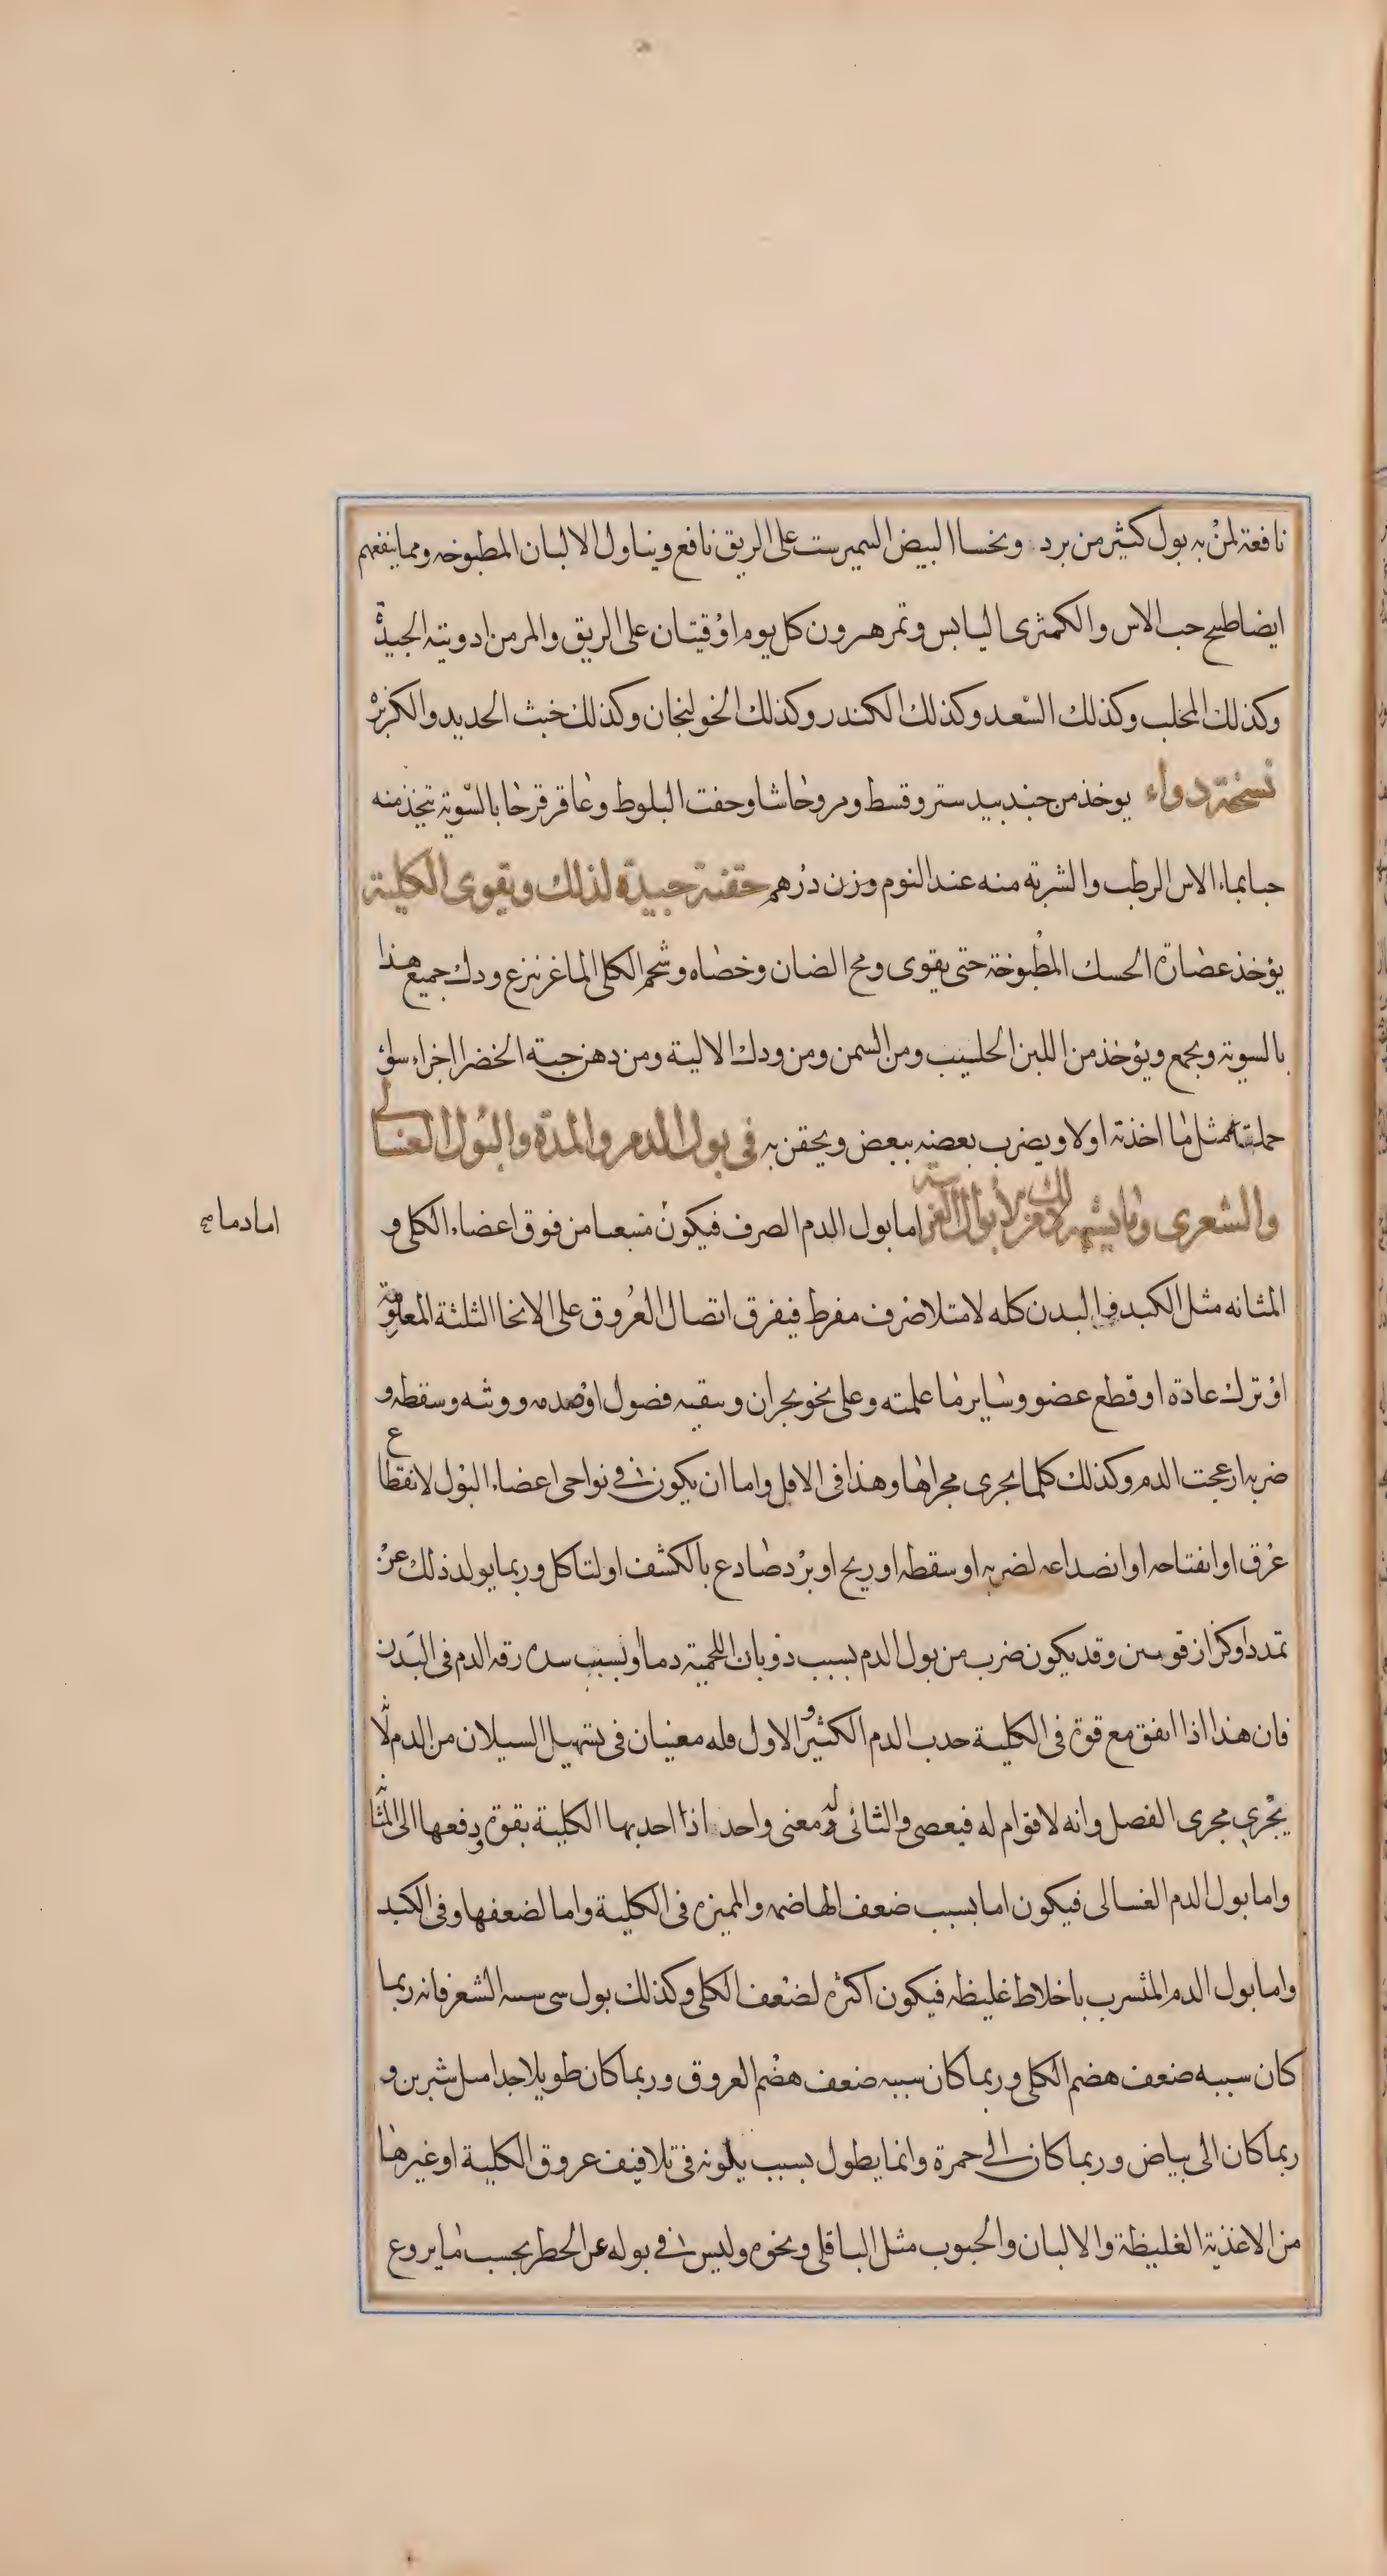 نافعة لمن به بول كثير من برد ونحسا البيض السميرست على الريق نافع ويناول الالبان المطبوخه ومما ينفعهم
ايضا طبيخ حب الاس والكمثرى اليابس وتمر هيرون كل يوم اوقيتان على الريق والمر من ادويته الجيدة
وكذلك المحلب وكذلك السعد وكذلك الكندر وكذلك الخولنجان وكذلك خبث الحديد والكزبره
نسخة دواء يوخذ من جندبيدستر وقسط ومر وحاشا وجفت البلوط وعاقرقرحا بالسوية تتخذ منه
حبا بماء الاس الرطب والشربة منه عند النوم وزن درهم حقنة جيدة لذلك ويقوى الكلية
يؤخذ عصارة الحسك المطبوخة حتى يقوى ومخ الضان وخصاه وشحم الكلى الماعز نزع ودك جميع هذا
بالسوية ويجمع ويؤخذ من اللبن الحليب ومن السمن ومن ودك الالية ومن دهن حبة الخضرا اجزاء سواء
جملتها مثل ما اخذته اولا ويضرب بعضه ببعض ويحقن به فى بول الدم والمدة والبول الغسالى
والشعرى وما يشبه ذلك من الابوال الغريبة اما بول الدم الصرف فيكون منبعا من فوق اعضاء الكلى و
اما دما صح
المثانه مثل الكبد والبدن كله لامتلا صرف مفرط فيفرق اتصال العروق على الانحا الثلثة المعلومة
او ترك عادة او قطع عضو وساير ما علمته وعلى نحو بحران وتنقيه فضول او صدمه ووثبه وسقطه و
ضربه ازعجت الدم وكذلك كلما يجرى مجراها وهذا فى الاقل واما ان يكون فى نواحى اعضاء البول لانقطاع
عرق او انفتاحه او انصداعه لضربه او سقطه او ريح او برد صادع بالكشف او لتاكل وربما يولد ذلك عن
تمدد او كزاز قويين وقد يكون ضرب من بول الدم بسبب ذوبان اللحمية دما او بسبب شده رقه الدم فى البدن
فان هذا اذا اتفق مع قوة فى الكلية جذب الدم الكثير والاول فله معنيان فى تسهيل السيلان من الدم لانه
يجرى مجرى الفصل وانه لا قوام له فيعصى والثانى له معنى واحد اذا اجذبها الكلية بقوة ودفعها الى المثانه
واما بول الدم الغسالى فيكون اما بسبب ضعف الهاضمه والمميزه فى الكلية واما لضعفها وفى الكبد
واما بول الدم المتسرب باخلاط غليظه فيكون اكثره لضعف الكلى وكذلك بول شى يشبه الشعر فانه ربما
كان سببه ضعف هضم الكلى وربما كان سببه ضعف هضم العروق وربما كان طويلا جدا مثل شبرين و
ربما كان الى بياض وربما كان الى حمرة وانما يطول بسبب يكونه فى تلافيف عروق الكلية او غيرها
من الاغذية الغليظة والالبان والحبوب مثل الباقلى ونحوه وليس فى بوله عن الخطر بحسب ما يروع